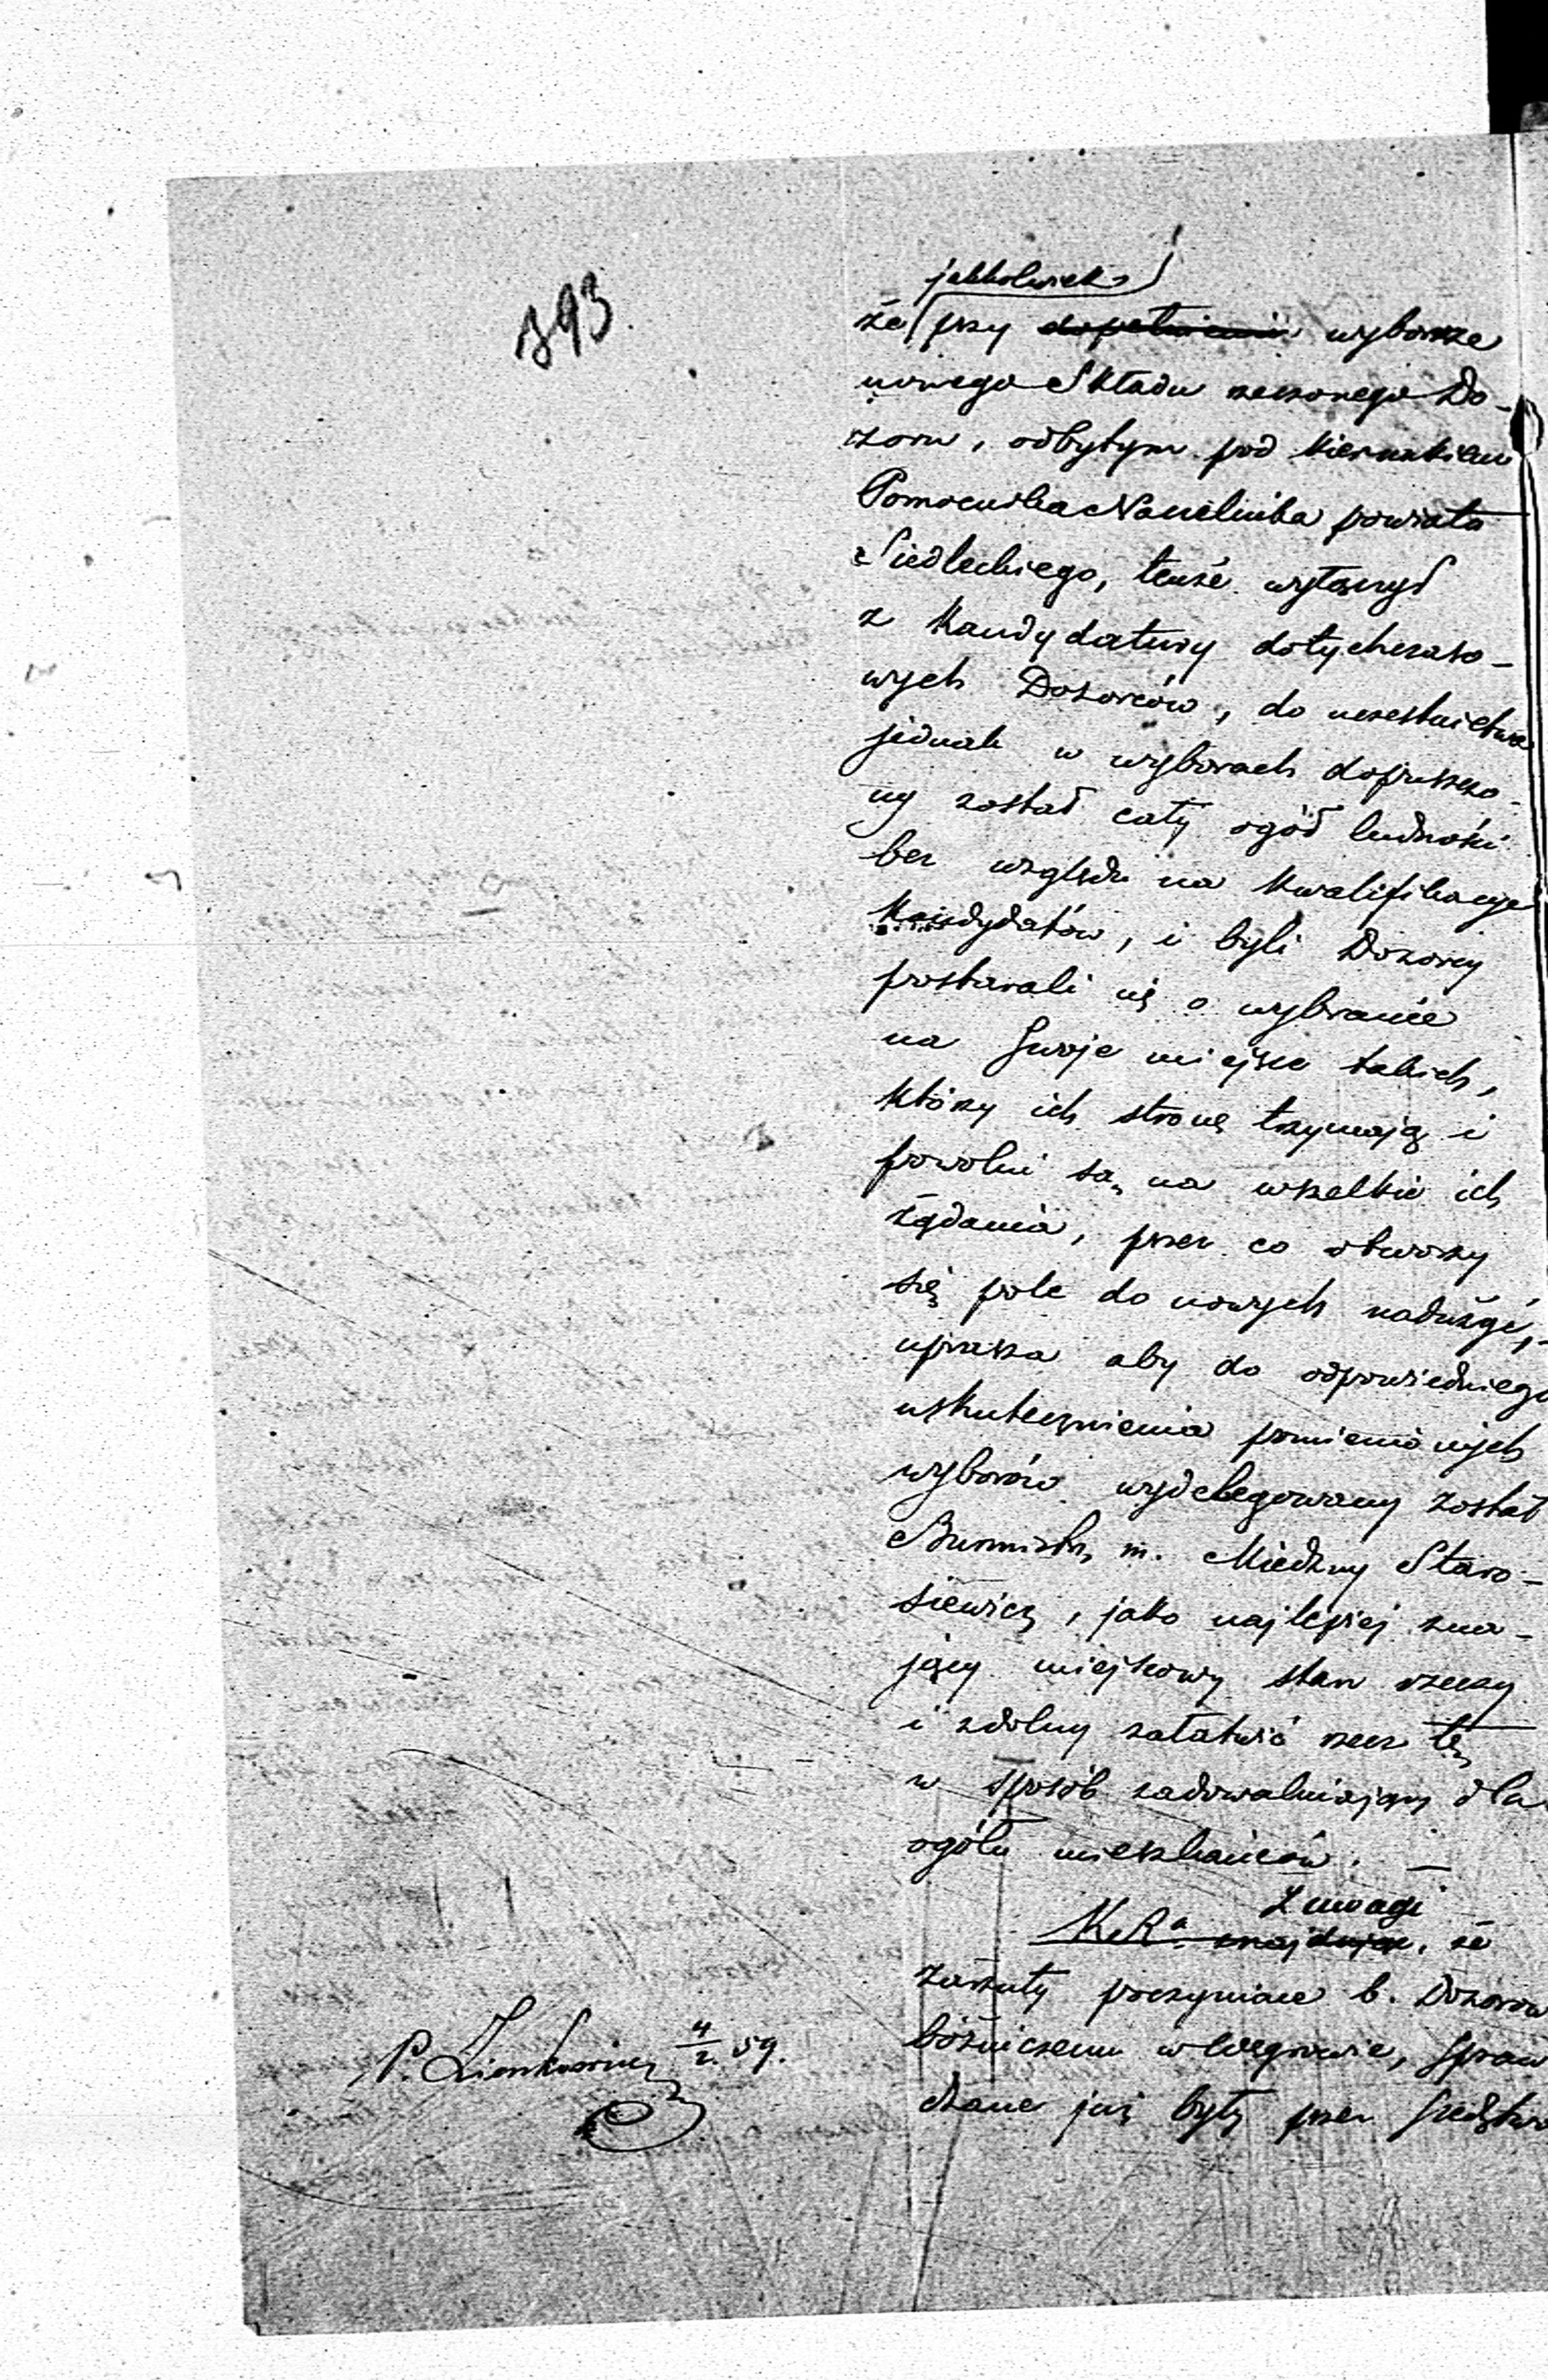 393.
jakkolwiek
że przy dopełnieniu wyborze
nowego Składu rzeczonego Do-
zoru, odbytym pod kierunkiem
Pomocnika Naczelnika powiatu
Siedleckiego, tenże wyłączył
z kandydatury dotychczaso-
wych Dozorców, do uczestnictwa
jednak w wyborach dopuszczo-
ny został cały ogół ludności
bez względu na kwalifikacye
kandydatów, i byli Dozorcy
postarali się o wybranie
na swoje miejsce takich,
którzy ich stronę trzymają i
powolni są na wszelkie ich
żądania, przez co otworzy
się pole do nowych nadużyć,-
uprasza aby do odpowiedniego
uskutecznienia pomienionych
wyborów wydelegowany został
Burmistrz m. Miedzny Staro-
siewicz, jako najlepiej zna-
jący miejscowy stan rzeczy
i zdolny załatwić rzecz tę
w sposób zadowalniający dla
ogółu mieszkańców. —
Z uwagi
K.R.a znajduje, że
zarzuty poczynione b. Dozorowi
bóżniczemu w Węgrowie, spraw
dzane już były przez śledztwo
P. Zienkiewicz 4/2 59.